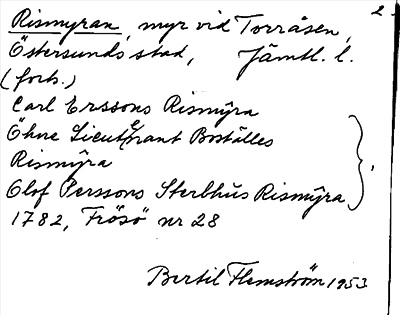 Rismyran, myr vid Torråsen, 2.
Östersunds stad, Jämtl. l.
(forts.)
Carl Erssons Rismÿra
Öhne Lieutenant Boställes
Rismÿra
Olof Perssons Sterbhûs Rismÿra
1782, Frösö nr 28
Bertil Flemström 1953